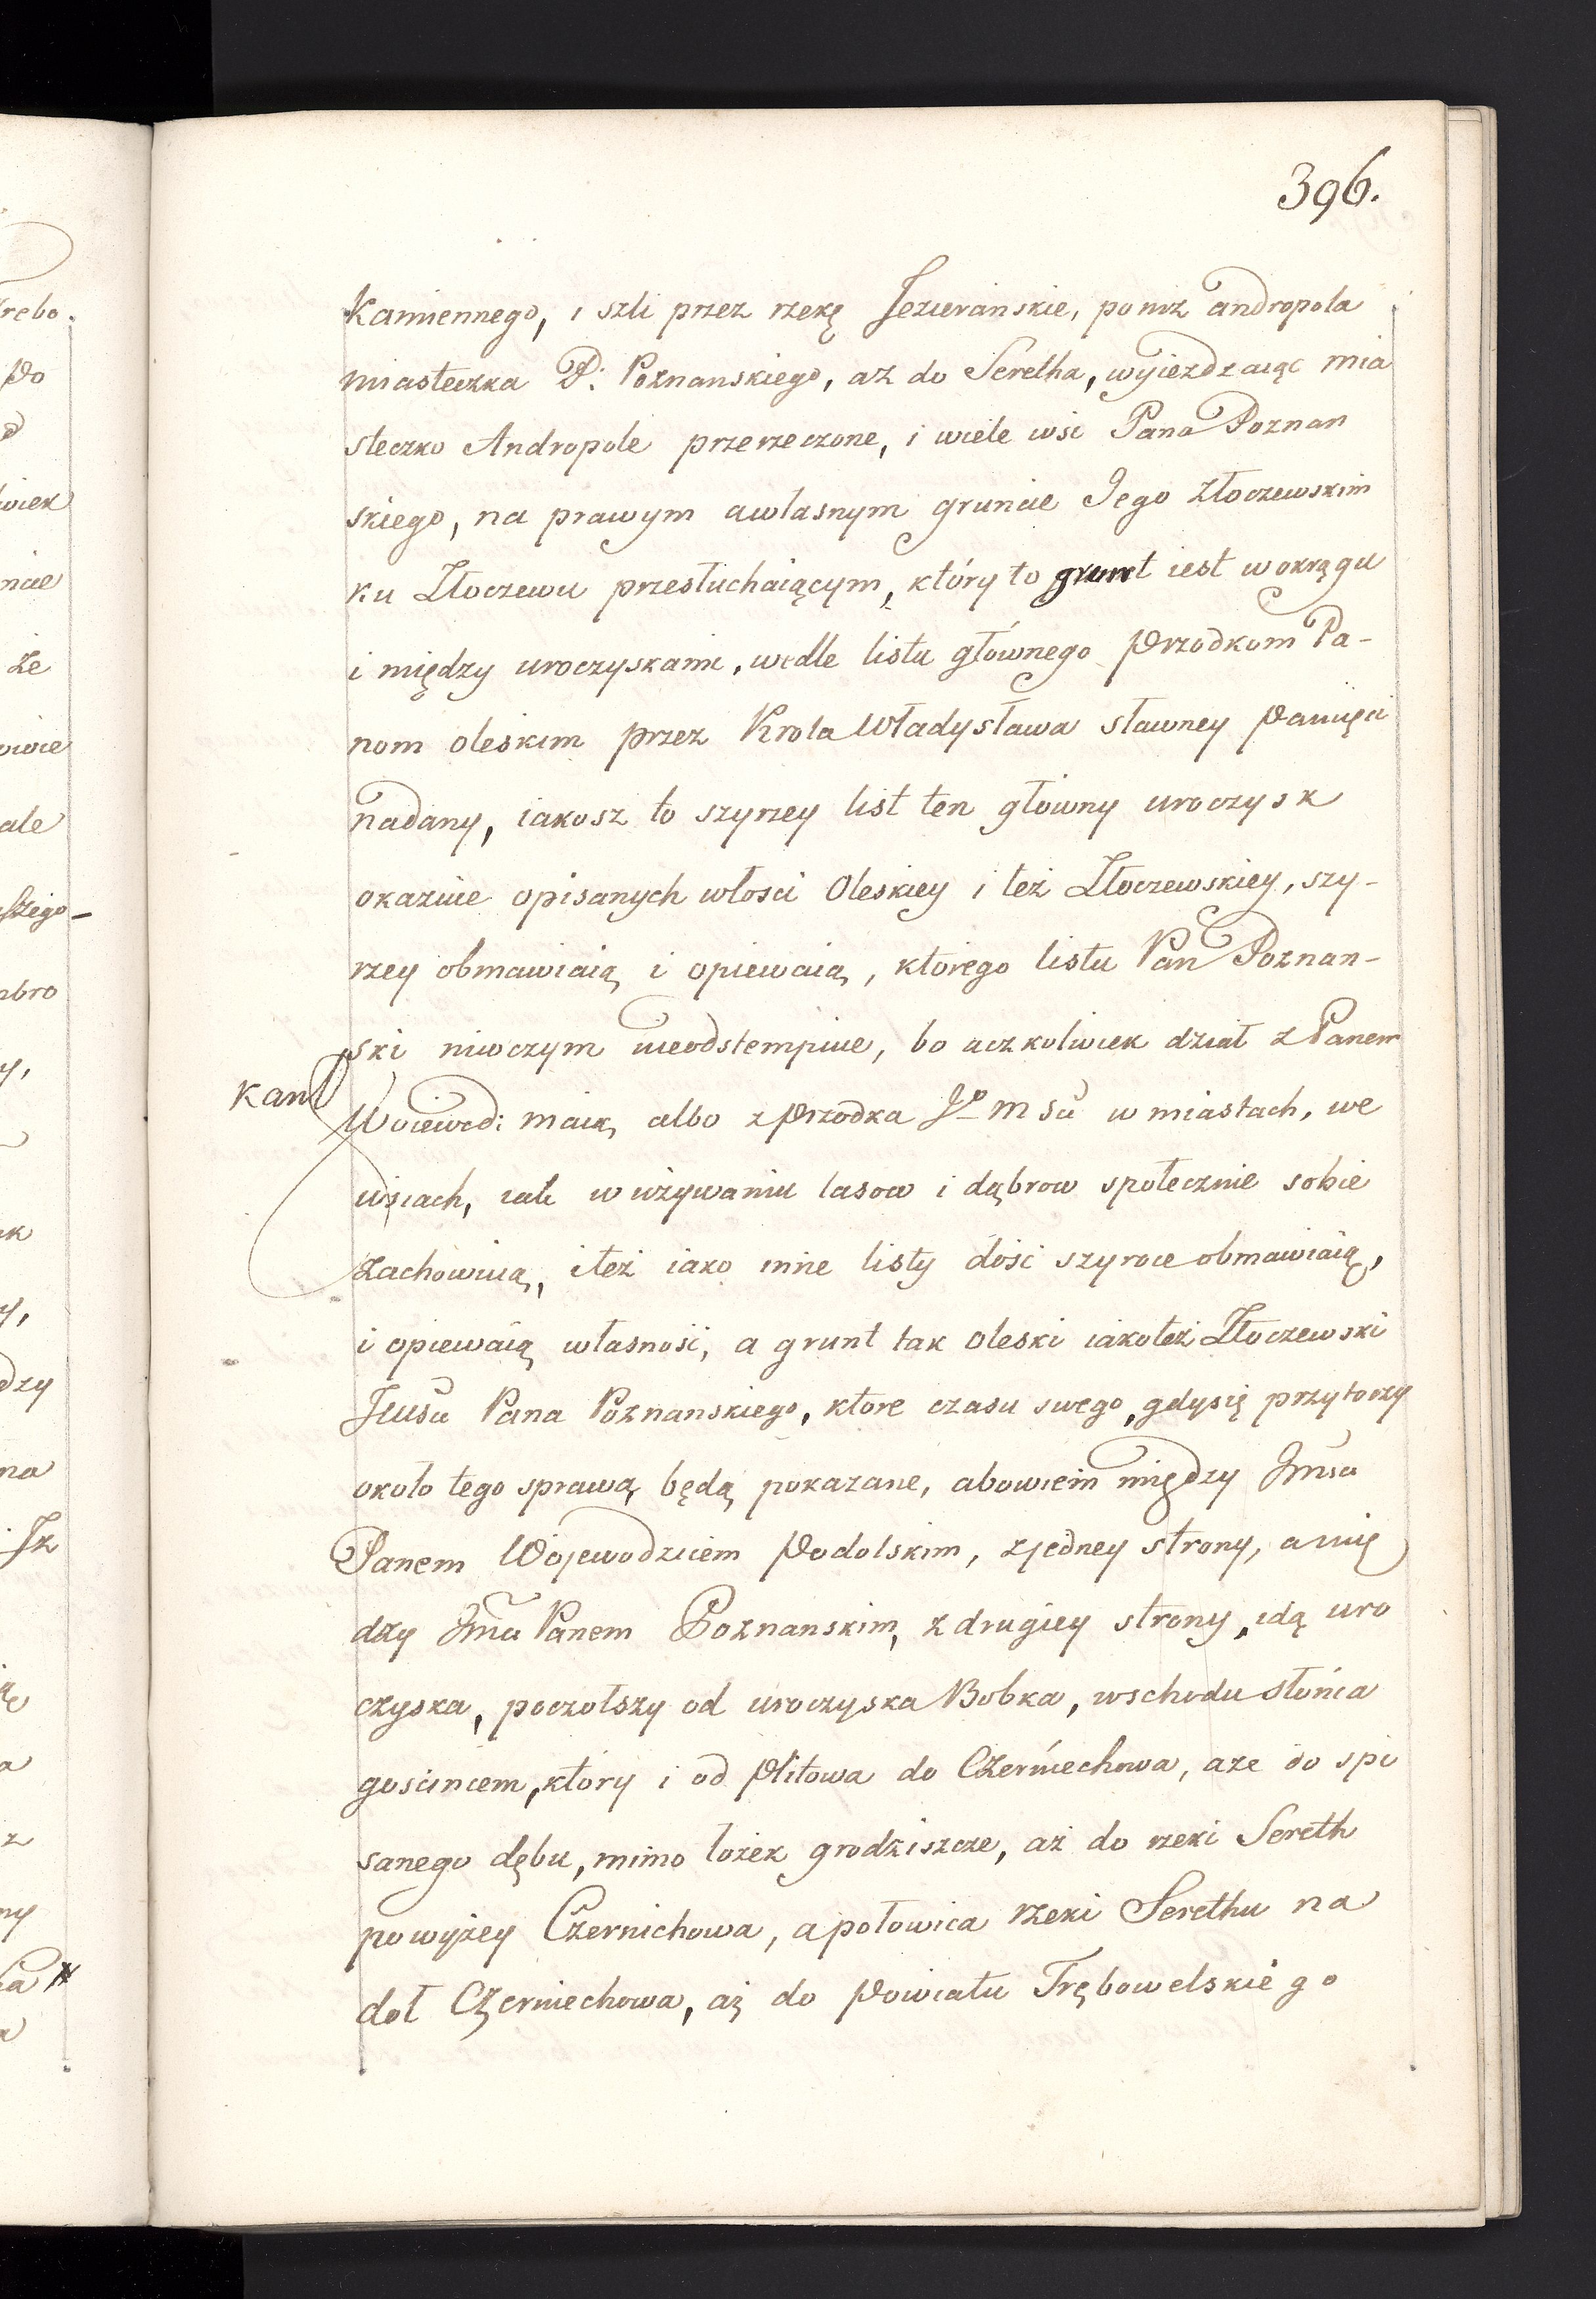 396.
Kamiennego, i szli przez rzekę Jezierańskie, poniz andropola
miasteczka P: Poznanskiego, aż do Seretha, wyjezdzaiąc mia
steczko Andropole przerzeczone, i wiele wsi Pana Poznan
skiego, na prawym awlasnym gruncie Jego Złoczewskim
ku Złoczewu przesłuchaiącym, który to grunt iest wokrągu
i między uroczyskami, wedle listu głównego Przodkom Pa-
nom oleskim przez Krola Władysława sławney Pamięci
nadany, iakosz to szyrzey list ten główny uroczysk
okaznie opisanych włosci Oleskiey i też Złoczewskiey, szy-
rzey obmawiaią i opiewaią, którego listu Pan Poznan-
ski niwczym nieodstempuie, bo aczkolwiek dział z Panem
Kam
Woiewodi maią albo z Przodka Jo m sci w miastach, we
wsiach, iak w używaniu lasow i dąbrow społecznie sobie
zachowuią, iteż iako inne listy dość szyroce obmawiaią,
i opiewaią własność, a grunt tak oleski iakoteż Złoczewski
Pana Poznanskiego, które czasu swego, gdysię przytoczy
około tego sprawą będą pokazane, abowiem między Jmsci
Panem Wojewodzicem Podolskim, zjedney strony, a mię
dzy Jmci Panem Poznanskim, z drugiey strony, idą uro
czyska, poczołszy od uroczyska Bobka, wschodu słońca
goscincem, który i od Plitowa do Czerniechowa, aże do spi
sanego dębu, mimo łozek grodziszcze, aż do rzeki Sereth
powyżey Czernichowa, a połowica rzeki Serethu na
doł Czerniechowa, aż do Powiatu Trębowelskiego